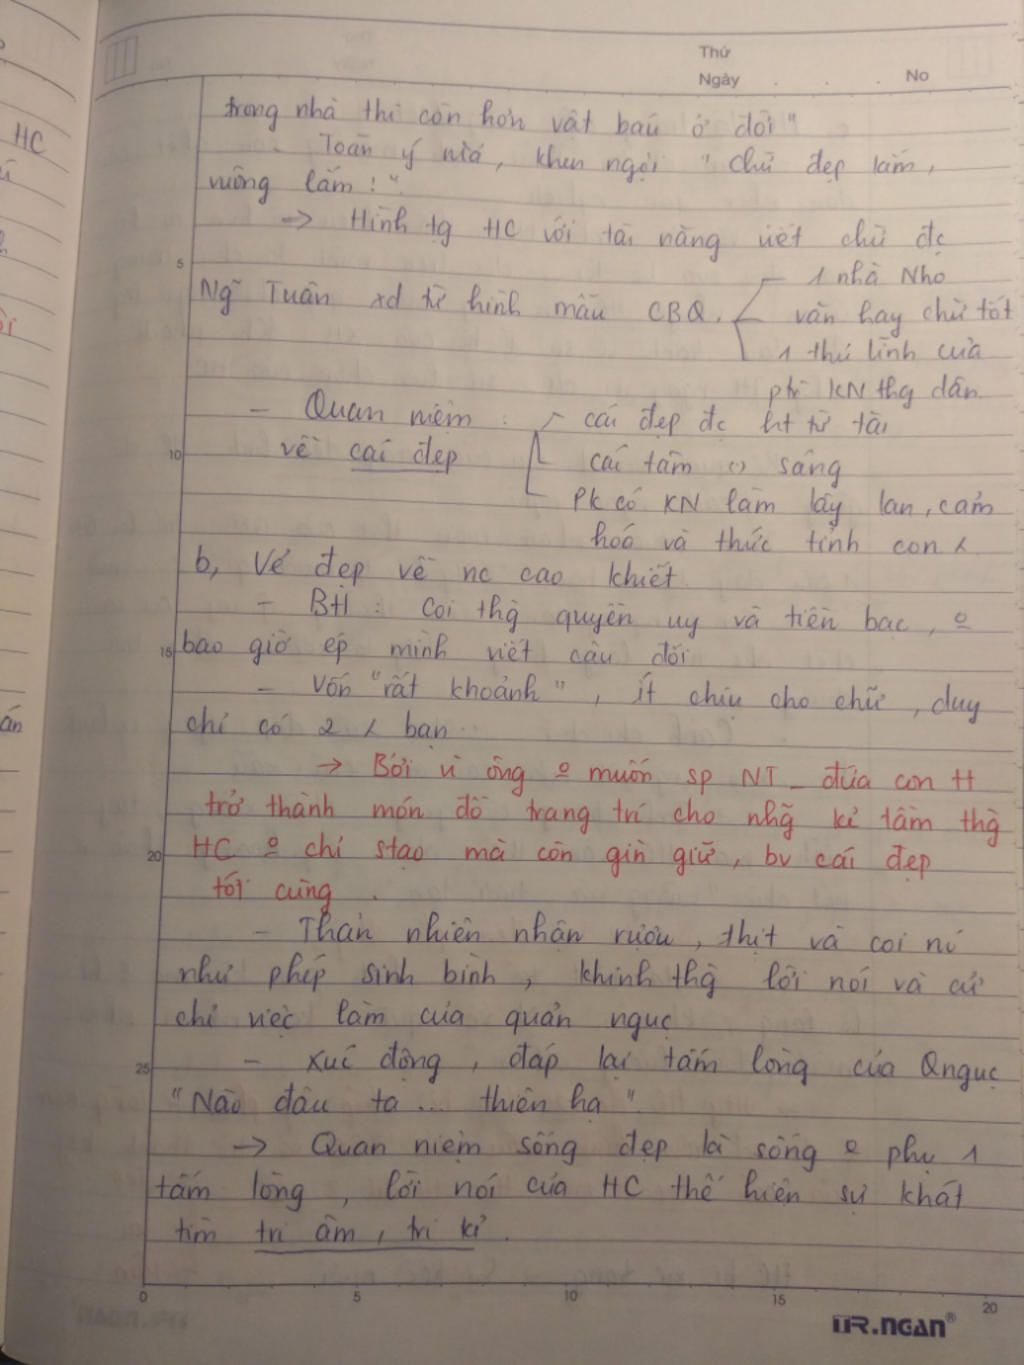 Thứ
Ngày . . . No
HC
trong nhà thì còn hơn vật báu ở đời"
- Toàn ý nhớ, khen ngợi "chữ đẹp lắm,
vuông lắm!".
→ Hình tg HC với tài năng viết chữ đc
Ng~ Tuân xd từ hình mẫu CBQ. 1 nhà Nho
văn hay chữ tốt
1 thủ lĩnh của
ptr KN thg dân
- Quan niệm : cái đẹp đc ht từ tài
về cái đẹp cái tâm sáng
Pk có KN làm lây lan, cảm
hoá và thức tỉnh con
b, Vẻ đẹp về nc cao khiết
- BH : coi thg quyền uy và tiền bạc, o
bao giờ ép mình viết câu đối
- Vốn "rất khoảnh", ít chịu cho chữ, duy
chỉ có 2 bạn
→ Bởi vì ông o muốn sp NT_ đứa con tt
trở thành món đồ trang trí cho nhg~ kẻ tầm thg
HC o chỉ stạo mà còn gìn giữ, bv cái đẹp
tới cùng.
- Thản nhiên nhận rượu, thịt và coi nó
như phép sinh bình, khinh thg lời nói và cử
chỉ việc làm của quản ngục
- Xúc động, đáp lại tấm lòng của Qngục
"Nào đâu ta... thiên hạ".
→ Quan niệm sống đẹp là sống o phụ 1
tấm lòng, lời nói của HC thể hiện sự khát
tìm tri âm, tri kỉ.
0 5 10 15 20
TR.NGAN®